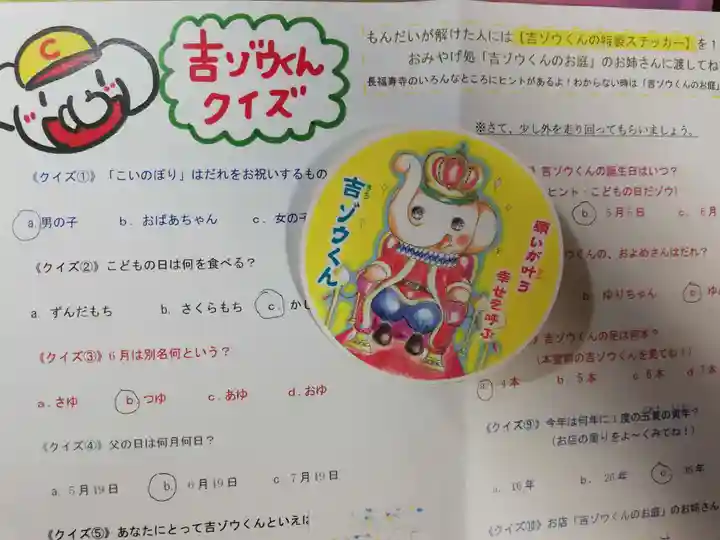 C
吉ゾウくん
クイズ
もんだいが解けた人には【吉ゾウくんの特製ステッカー】を！
おみやげ処「吉ゾウくんのお庭」のお姉さんに渡してね
長福寿寺のいろんなところにヒントがあるよ！わからない時は「吉ゾウくんのお庭」
※さて、少し外を走り回ってもらいましょう。
《クイズ①》「こいのぼり」はだれをお祝いするもの
a.男の子 b. おばあちゃん c. 女の子
《クイズ②》こどもの日は何を食べる？
a. ずんだもち b. さくらもち c. かし
《クイズ③》6月は別名何という？
a.さゆ b.つゆ c.あゆ d.おゆ
《クイズ④》父の日は何月何日？
a. 5月19日 b. 6月19日 c 7月19日
《クイズ⑤》あなたにとって吉ゾウくんといえば
吉ゾウくん
願いが叶う
幸せを呼ぶ
吉ゾウくんの誕生日はいつ？
ヒント・こどもの日だゾウ！
b. 5月6日 c. 6月
くんの、およめさんはだれ？
b. ゆりちゃん c. ゆ
吉ゾウくんの足は何本？
（本堂前の吉ゾウくんを見てね！）
a. 4本 b 5本 c 6本 d 7本
《クイズ⑨》今年は何年に1度の五黄の寅年？
（お店の周りをよ～くみてね！）
a. 16年 b. 26年 c. 36年
《クイズ⑩》お店「吉ゾウくんのお庭」のお姉さん